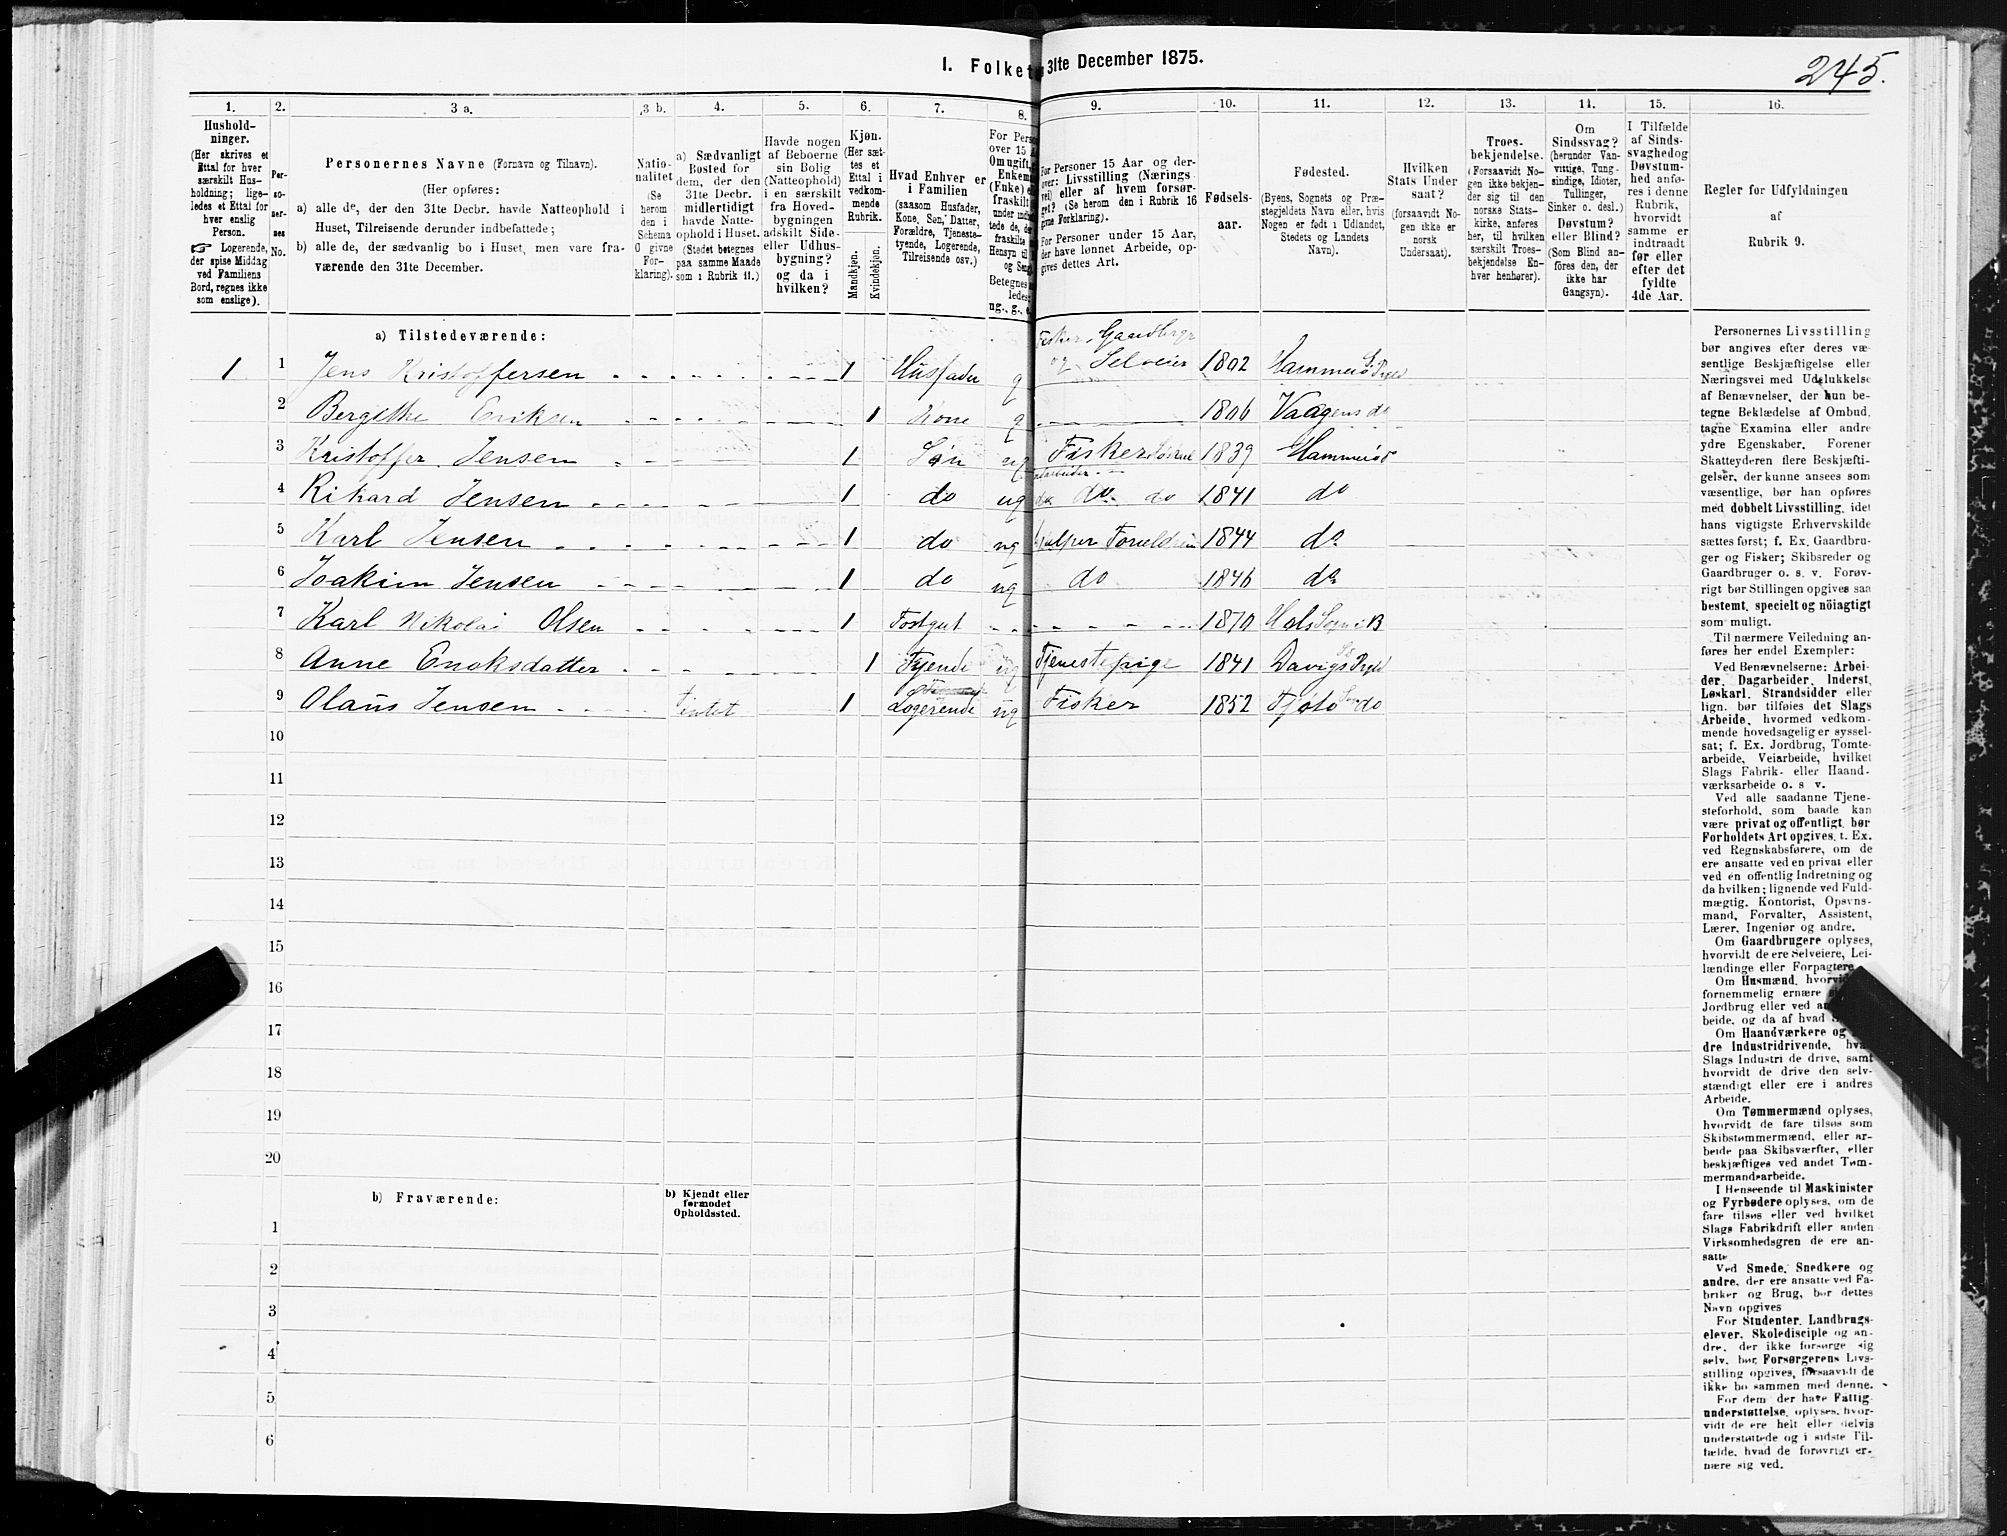 I. Folket 31te December 1875.
245.
1. 2. 3 a. 3 b. 4. 5. 6. 7. 8. 9. 10. 11. 12. 13. 14. 15. 16.
Hushold-
ninger.
(Her skrives et
Ettal for hver
særskilt Hus-
holdning; lige-
ledes et Ettal for
hver enslig
Person.
☞ Logerende,
der spise Middag
ved Familiens
Bord, regnes ikke
som enslige).
Per-
so-
ner-
nes
No.
Personernes Navne (Fornavn og Tilnavn).
(Her opføres:
a) alle de, der den 31te Decbr. havde Natteophold i
Huset, Tilreisende derunder indbefattede;
b) alle de, der sædvanlig bo i Huset, men vare fra-
værende den 31te December.
Natio-
nalitet
(Se
herom
den i
Schema
O givne
For-
klaring).
a) Sædvanligt
Bosted for
dem, der den
31te Decbr.
midlertidigt
havde Natte-
ophold i Huset.
(Stedet betegnes
paa samme Maade
som i Rubrik 11.)
Havde nogen
af Beboerne
sin Bolig
(Natteophold)
i en særskilt
fra Hoved-
bygningen
adskilt Side-
eller Udhus-
bygning?
og da i
hvilken?
Kjøn.
(Her sæt-
tes et
Ettal i
vedkom-
mende
Rubrik.
Mandkjøn.
Kvindekjøn.
Hvad Enhver er
i Familien
(saasom Husfader,
Kone, Søn, Datter,
Forældre, Tjeneste-
tyende, Logerende,
Tilreisende osv.)
For Perso
over 15 A
Omugift,
Enkema
(Enke) e
fraskilt
under ind
tede de, de
fraskilte
Hensyn til
og Seng
Betegnes
ledes:
ug., g.,
For Personer 15 Aar og der-
over: Livsstilling (Nærings
vei) eller af hvem forsør-
get? (Se herom den i Rubrik 16
givne Forklaring).
For Personer under 15 Aar,
der have lønnet Arbeide, op-
gives dettes Art.
Fødsels-
aar.
Fødested.
(Byens, Sognets og Præ-
stegjeldets Navn eller, hvis
Nogen er født i Udlandet,
Stedets og Landets
Navn).
Hvilken
Stats Under
saat?
(forsaavidt No-
gen ikke er
norsk
Undersaat).
Troes-
bekjendelse.
(Forsaavidt No-
gen ikke bekjen-
der sig til den
norske Stats-
kirke, anføres
her, til hvilken
særskilt Troes-
bekjendelse En-
hver henhører).
Om
Sindssvag?
(herunder Van-
vittige, Tung-
sindige, Idioter,
Tullinger,
Sinker o. desl.)
Døvstum?
eller Blind?
(Som Blind an-
føres den, der
ikke har
Gangsyn).
I Tilfælde
af Sinds-
svaghed og
Døvstum-
hed anfø-
res i denne
Rubrik,
hvorvidt
samme er
indtraadt
før eller
efter det
fyldte
4de Aar.
Regler for Udfyldningen
af
Rubrik 9.
a) Tilstedeværende:
Fisker Gaardbruger
1 1 Jens Kristoffersen 1 Husfader g og Selveier 1802 Hammerø Prgld
2 Bergithe Eriksen 1 Kone g 1806 Vaagens do
3 Kristoffer Jensen 1 Søn ug Fisker 1839 Hammerø
4 Rikard Jensen 1 do ug do do 1841 do
5 Karl Jensen 1 do ug hjelper Forældrene 1844 do
6 Joakim Jensen 1 do ug do 1846 do
7 Karl Nikolai Olsen 1 Fostgut 1870 Hols Sogn i B
8 Anne Enoksdatter 1 Tyende ug Tjenestepige 1841 Davigs Prgld
9 Olaus Jensen 1 Logerende ug Fisker 1852 Tjøtø do
10
11
12
13
14
15
16
17
18
19
20
b) Fraværende:
b) Kjendt eller
formodet
Opholdssted.
1
2
3
4
5
6
Personernes Livsstilling
bør angives efter deres væ-
sentlige Beskjæftigelse eller
Næringsvei med Udelukkelse
af Benævnelser, der kun be-
tegne Beklædelse af Ombud,
tagne Examina eller andre
ydre Egenskaber. Forener
Skatteyderen flere Beskjæfti-
gelser, der kunne ansees som
væsentlige, bør han opføres
med dobbelt Livsstilling, idet
hans vigtigste Erhvervskilde
sættes først; f. Ex. Gaardbru-
ger og Fisker; Skibsreder og
Gaardbruger o. s. v. Forøv-
rigt bør Stillingen opgives saa
bestemt, specielt og nöiagtigt
som muligt.
Til nærmere Veiledning an-
føres her endel Exempler:
Ved Benævnelserne: Arbei-
der, Dagarbeider, Inderst,
Løskarl, Strandsidder eller
lign. bør tilføies det Slags
Arbeide, hvormed vedkom-
mende hovedsagelig er syssel-
sat; f. Ex. Jordbrug, Tomte-
arbeide, Veiarbeide, hvilket
Slags Fabrik- eller Haand-
værksarbeide o. s v.
Ved alle saadanne Tjene-
steforhold, som baade kan
være privat og offentligt, bør
Forholdets Art opgives, t. Ex.
ved Regnskabsførere, om de
ere ansatte ved en privat eller
ved en offentlig Indretning og
da hvilken; lignende ved Fuld-
mægtig, Kontorist, Opsyns-
mand, Forvalter, Assistent,
Lærer, Ingeniør og andre.
Om Gaardbrugere oplyses,
hvorvidt de ere Selveiere, Lei-
lændinge eller Forpagtere.
Om Husmænd, hvorvid
fornemmelig ernære
Jordbrug eller ved an
beide, og da af hvad
Om Haandværkere og
dre Industridrivende, hva
Slags Industri de drive, samt
hvorvidt de drive den selv-
stændigt eller ere i andres
Arbeide.
Om Tømmermænd oplyses,
hvorvidt de fare tilsøs som
Skibstømmermænd, eller ar-
beide paa Skibsværfter, eller
beskjæftiges ved andet Tøm-
mermandsarbeide.
I Henseende til Maskinister
og Fyrbødere oplyses, om de
fare tilsøs eller ved hvilket
Slags Fabrikdrift eller anden
Virksomhedsgren de ere an-
satte.
Ved Smede, Snedkere og
andre, der ere ansatte ved Fa-
briker og Brug, bør dettes
Navn opgives
For Studenter, Landbrugs-
elever, Skoledisciple og an-
dre, der ikke forsørge sig
selv, bør Forsørgerens Livs-
stilling opgives, forsaavidt de
ikke bo sammen med denne.
For dem, der have Fattig-
understøttelse, oplyses, hvor-
vidt de ere helt eller delvis
understøttede og i sidste Til-
fælde, hvad de forøvrigt er-
nære sig ved.